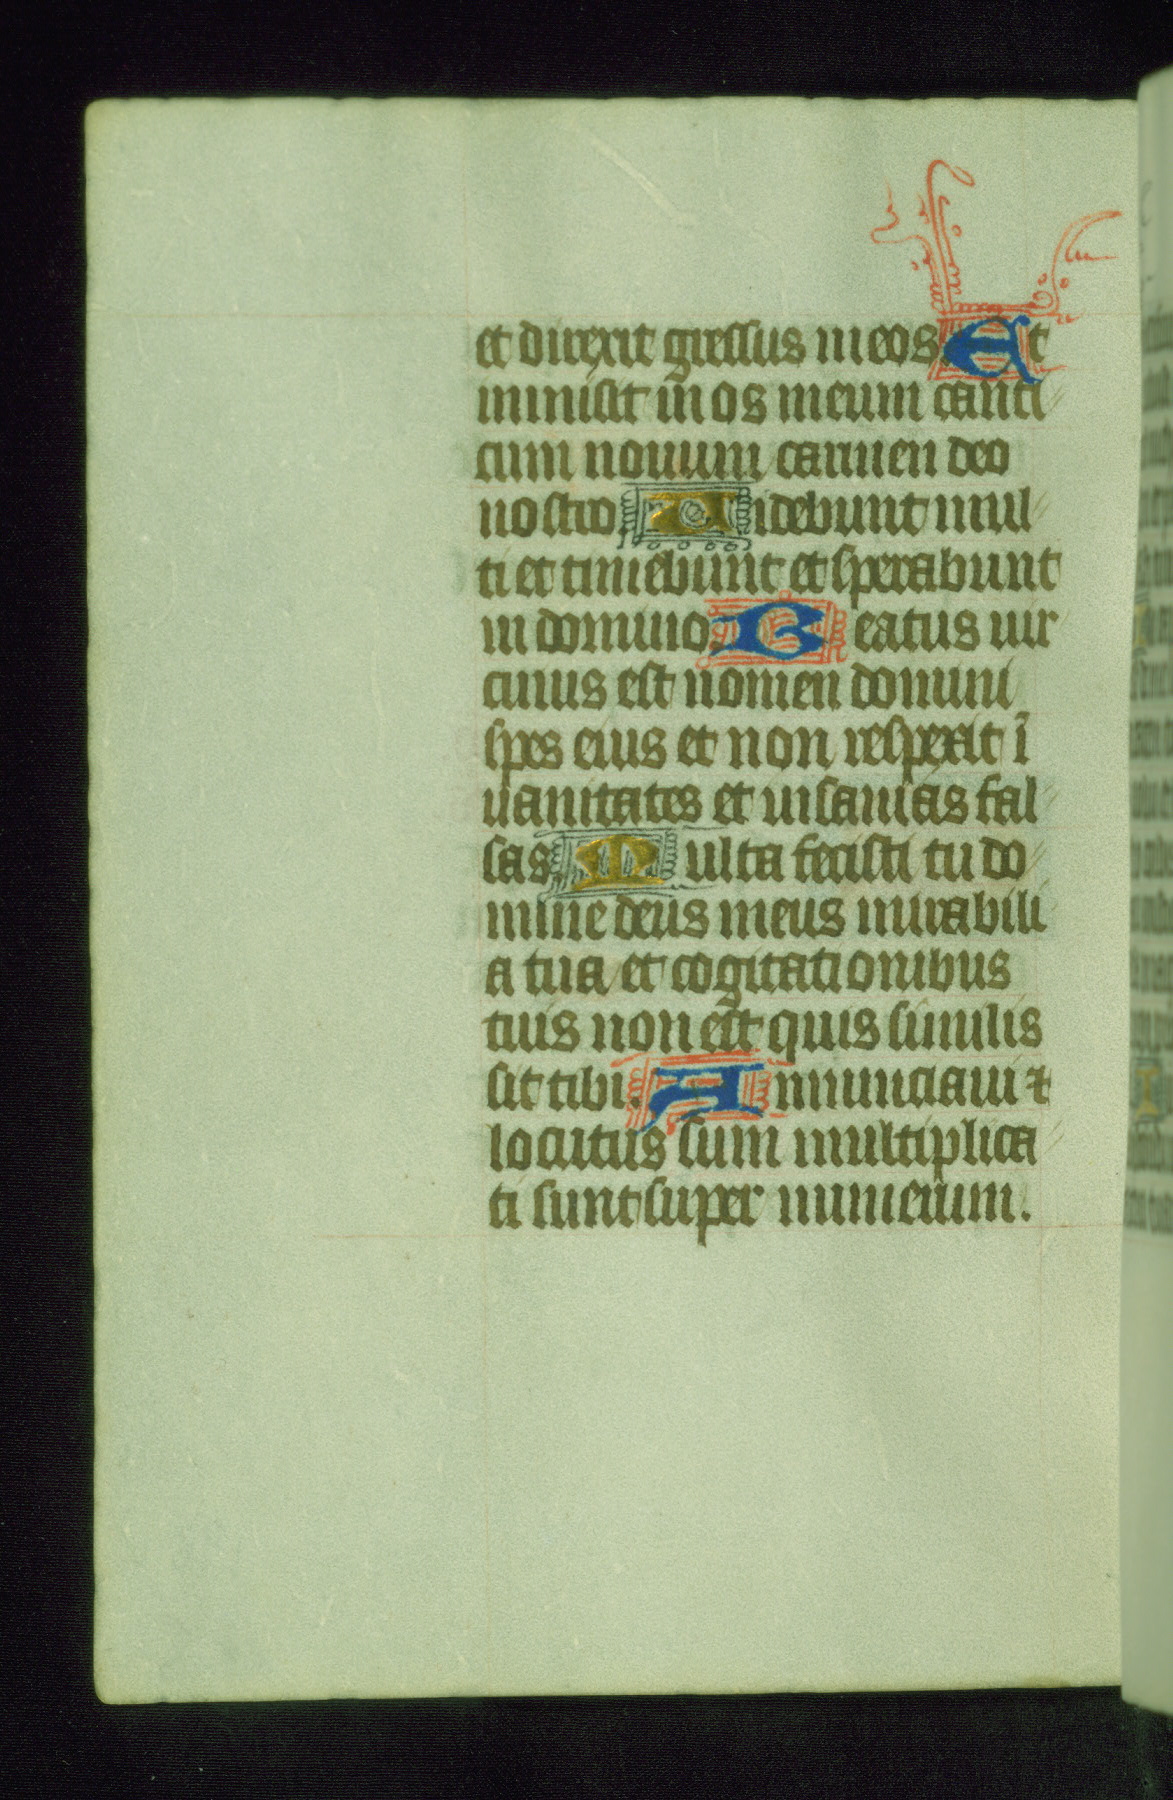 et direxit gressus meos. Et
inmisit in os meum canti
cum nouum carmen deo
nostro. Uidebunt mul
ti et timebunt et sperabunt
in domino. Beatus uir
cuius est nomen domini
spes eius et non respexit ī
uanitates et insanias fal
sas. Multa fecisti tu do
mine deus meus mirabili
a tua et cogitationibus
tuis non est quis similis
sit tibi. Annunciaui ⁊
locutus sum multiplica
ti sunt super numerum.